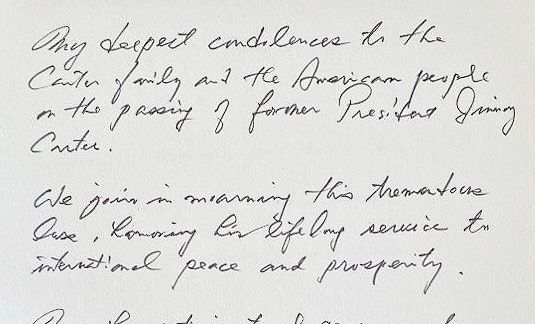 My deepest condolences to the
Carter family and the American people
on the passing of former President Jimmy
Carter.
We join in mourning this tremendous
loss, honoring his lifelong service to
international peace and prosperity.